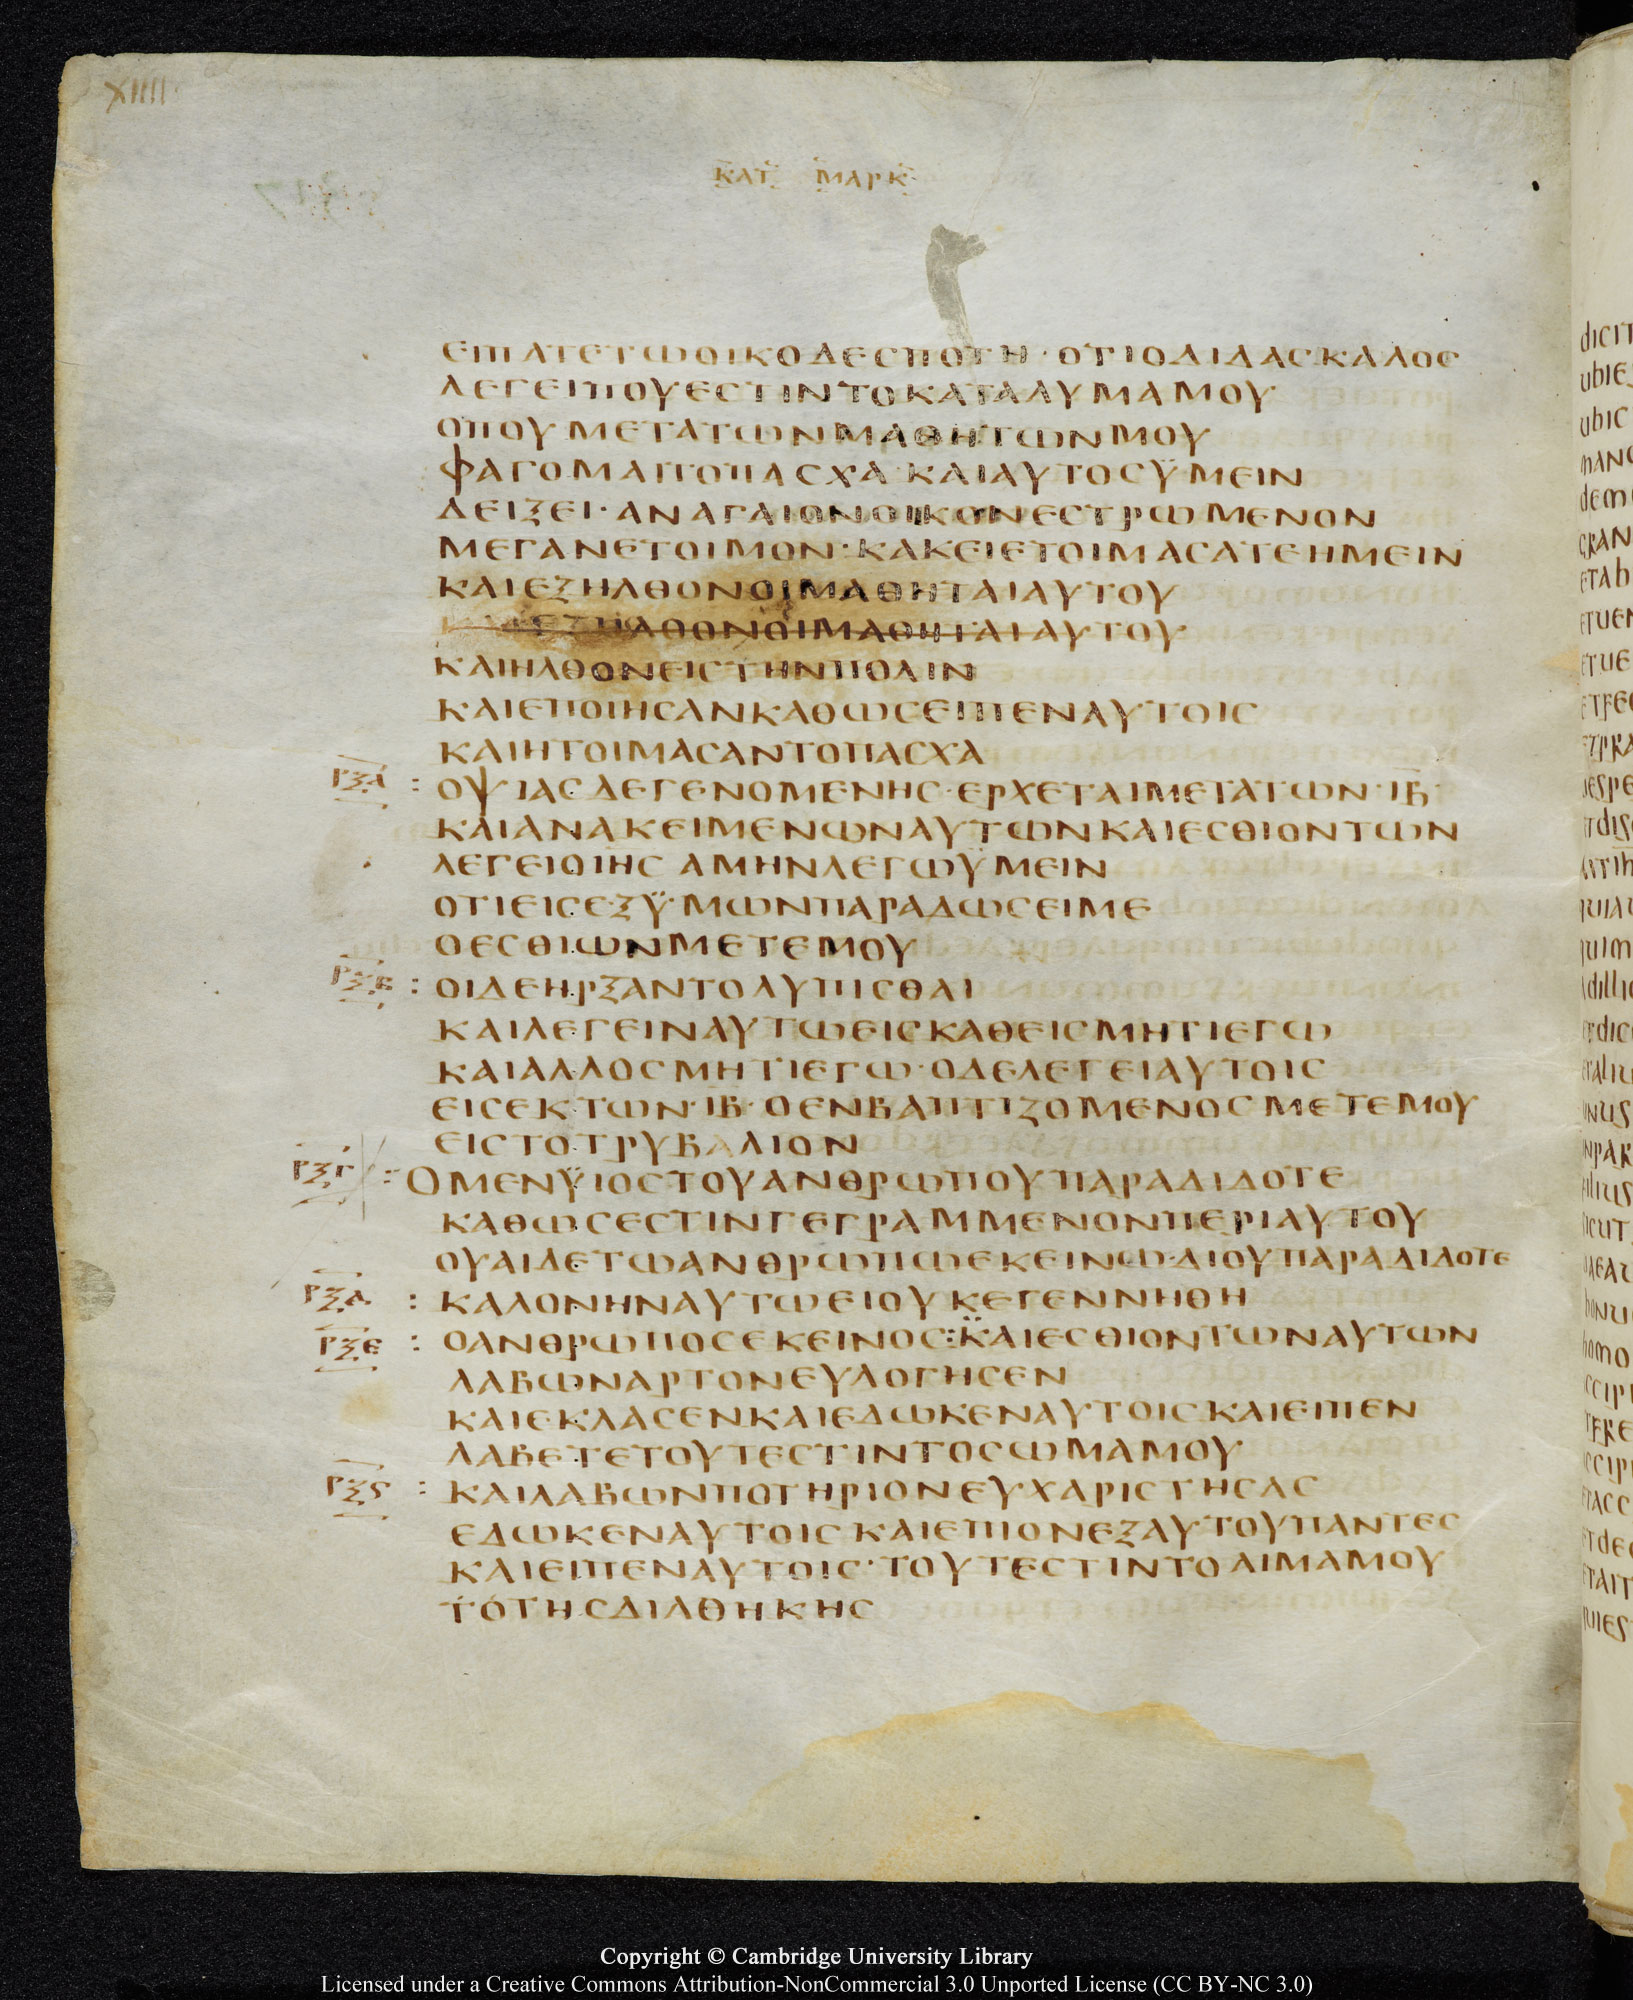 XIIII
ΚΑΤ ΜΑΡΚ
ΕΙΠΑΤΕΤΩΟΙΚΟΔΕΣΠΟΤΗ · ΟΤΙΟΔΙΔΑΣΚΑΛΟΣ
ΛΕΓΕΙΠΟΥΕΣΤΙΝΤΟΚΑΤΑΛΥΜΑΜΟΥ
ΟΠΟΥΜΕΤΑΤΩΝΜΑΘΗΤΩΝΜΟΥ
ΦΑΓΟΜΑΙΤΟΠΑΣΧΑ · ΚΑΙΑΥΤΟΣΫΜΕΙΝ
ΔΕΙΞΕΙ · ΑΝΑΓΑΙΟΝΟΙΚΟΝΕΣΤΡΩΜΕΝΟΝ
ΜΕΓΑΝΕΤΟΙΜΟΝ · ΚΑΚΕΙΕΤΟΙΜΑΣΑΤΕΗΜΕΙΝ
ΚΑΙΕΞΗΛΘΟΝΟΙΜΑΘΗΤΑΙΑΥΤΟΥ
ΚΑΙΕΞΗΛΘΟΝΟΙΜΑΘΗΤΑΙΑΥΤΟΥ
ΚΑΙΗΛΘΟΝΕΙΣΤΗΝΠΟΛΙΝ
ΚΑΙΕΠΟΙΗΣΑΝΚΑΘΩΣΕΙΠΕΝΑΥΤΟΙΣ
ΚΑΙΗΤΟΙΜΑΣΑΝΤΟΠΑΣΧΑ
ΡΞΑ : ΟΨΙΑΣΔΕΓΕΝΟΜΕΝΗΣ · ΕΡΧΕΤΑΙΜΕΤΑΤΩΝ · ΙΒ ·
ΚΑΙΑΝΑΚΕΙΜΕΝΩΝΑΥΤΩΝΚΑΙΕΣΘΙΟΝΤΩΝ
ΛΕΓΕΙΟΙΗΣ ΑΜΗΝΛΕΓΩΫΜΕΙΝ
ΟΤΙΕΙΣΕΞΫΜΩΝΠΑΡΑΔΩΣΕΙΜΕ
ΟΕΣΘΙΩΝΜΕΤΕΜΟΥ
ΡΞΒ : ΟΙΔΕΗΡΞΑΝΤΟΛΥΠΙΣΘΑΙ
ΚΑΙΛΕΓΕΙΝΑΥΤΩΕΙΣΚΑΘΕΙΣΜΗΤΙΕΓΩ
ΚΑΙΑΛΛΟΣΜΗΤΙΕΓΩ · ΟΔΕΛΕΓΕΙΑΥΤΟΙΣ
ΕΙΣΕΚΤΩΝ · ΙΒ · ΟΕΝΒΑΠΤΙΖΟΜΕΝΟΣΜΕΤΕΜΟΥ
ΕΙΣΤΟΤΡΥΒΑΛΙΟΝ
ΡΞΓ : ΟΜΕΝΫΙΟΣΤΟΥΑΝΘΡΩΠΟΥΠΑΡΑΔΙΔΟΤΕ
ΚΑΘΩΣΕΣΤΙΝΓΕΓΡΑΜΜΕΝΟΝΠΕΡΙΑΥΤΟΥ
ΟΥΑΙΔΕΤΩΑΝΘΡΩΠΩΕΚΕΙΝΩ · ΔΙΟΥΠΑΡΑΔΙΔΟΤΕ
ΡΞΔ : ΚΑΛΟΝΗΝΑΥΤΩΕΙΟΥΚΕΓΕΝΝΗΘΗ
ΡΞΕ : ΟΑΝΘΡΩΠΟΣΕΚΕΙΝΟΣ : ΚΑΙΕΣΘΙΟΝΤΩΝΑΥΤΩΝ
ΛΑΒΩΝΑΡΤΟΝΕΥΛΟΓΗΣΕΝ
ΚΑΙΕΚΛΑΣΕΝΚΑΙΕΔΩΚΕΝΑΥΤΟΙΣΚΑΙΕΙΠΕΝ
ΛΑΒΕΤΕΤΟΥΤΕΣΤΙΝΤΟΣΩΜΑΜΟΥ
ΡΞϚ : ΚΑΙΛΑΒΩΝΠΟΤΗΡΙΟΝΕΥΧΑΡΙΣΤΗΣΑΣ
ΕΔΩΚΕΝΑΥΤΟΙΣΚΑΙΕΠΙΟΝΕΞΑΥΤΟΥΠΑΝΤΕΣ
ΚΑΙΕΙΠΕΝΑΥΤΟΙΣ · ΤΟΥΤΕΣΤΙΝΤΟΑΙΜΑΜΟΥ
ΤΟΤΗΣΔΙΑΘΗΚΗΣ
Copyright © Cambridge University Library
Licensed under a Creative Commons Attribution-NonCommercial 3.0 Unported License (CC BY-NC 3.0)